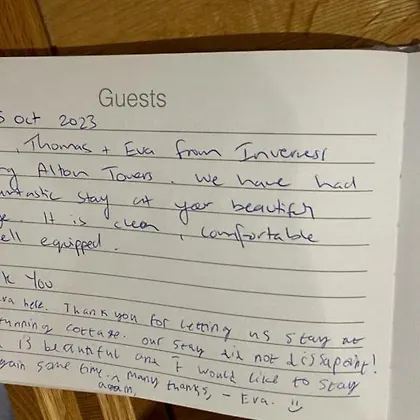 Guests
Oct 2023
, Thomas + Eva from Inverness
Alton Towers. We have had
stay at your beautiful
. It is clean, comfortable
equipped.
You
here. Thank you for letting us stay at
cottage. our stay did not dissapoint!
is beautiful and I would like to stay
some time, many thanks, - Eva. ☺
again,